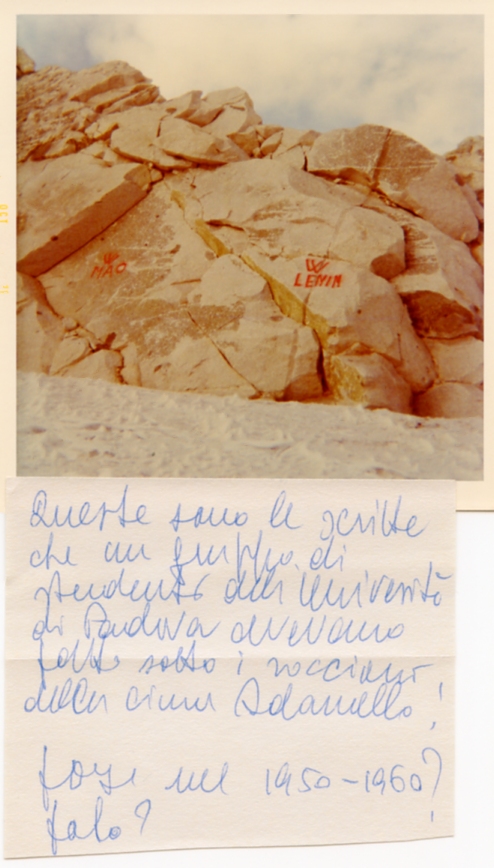 W
MAO
W
LENIN
Queste sono le scritte
che un gruppo di
studenti dell'Università
di Padova avevano
fatte sotto i roccioni
della cima Adamello!
forse nel 1950-1960?